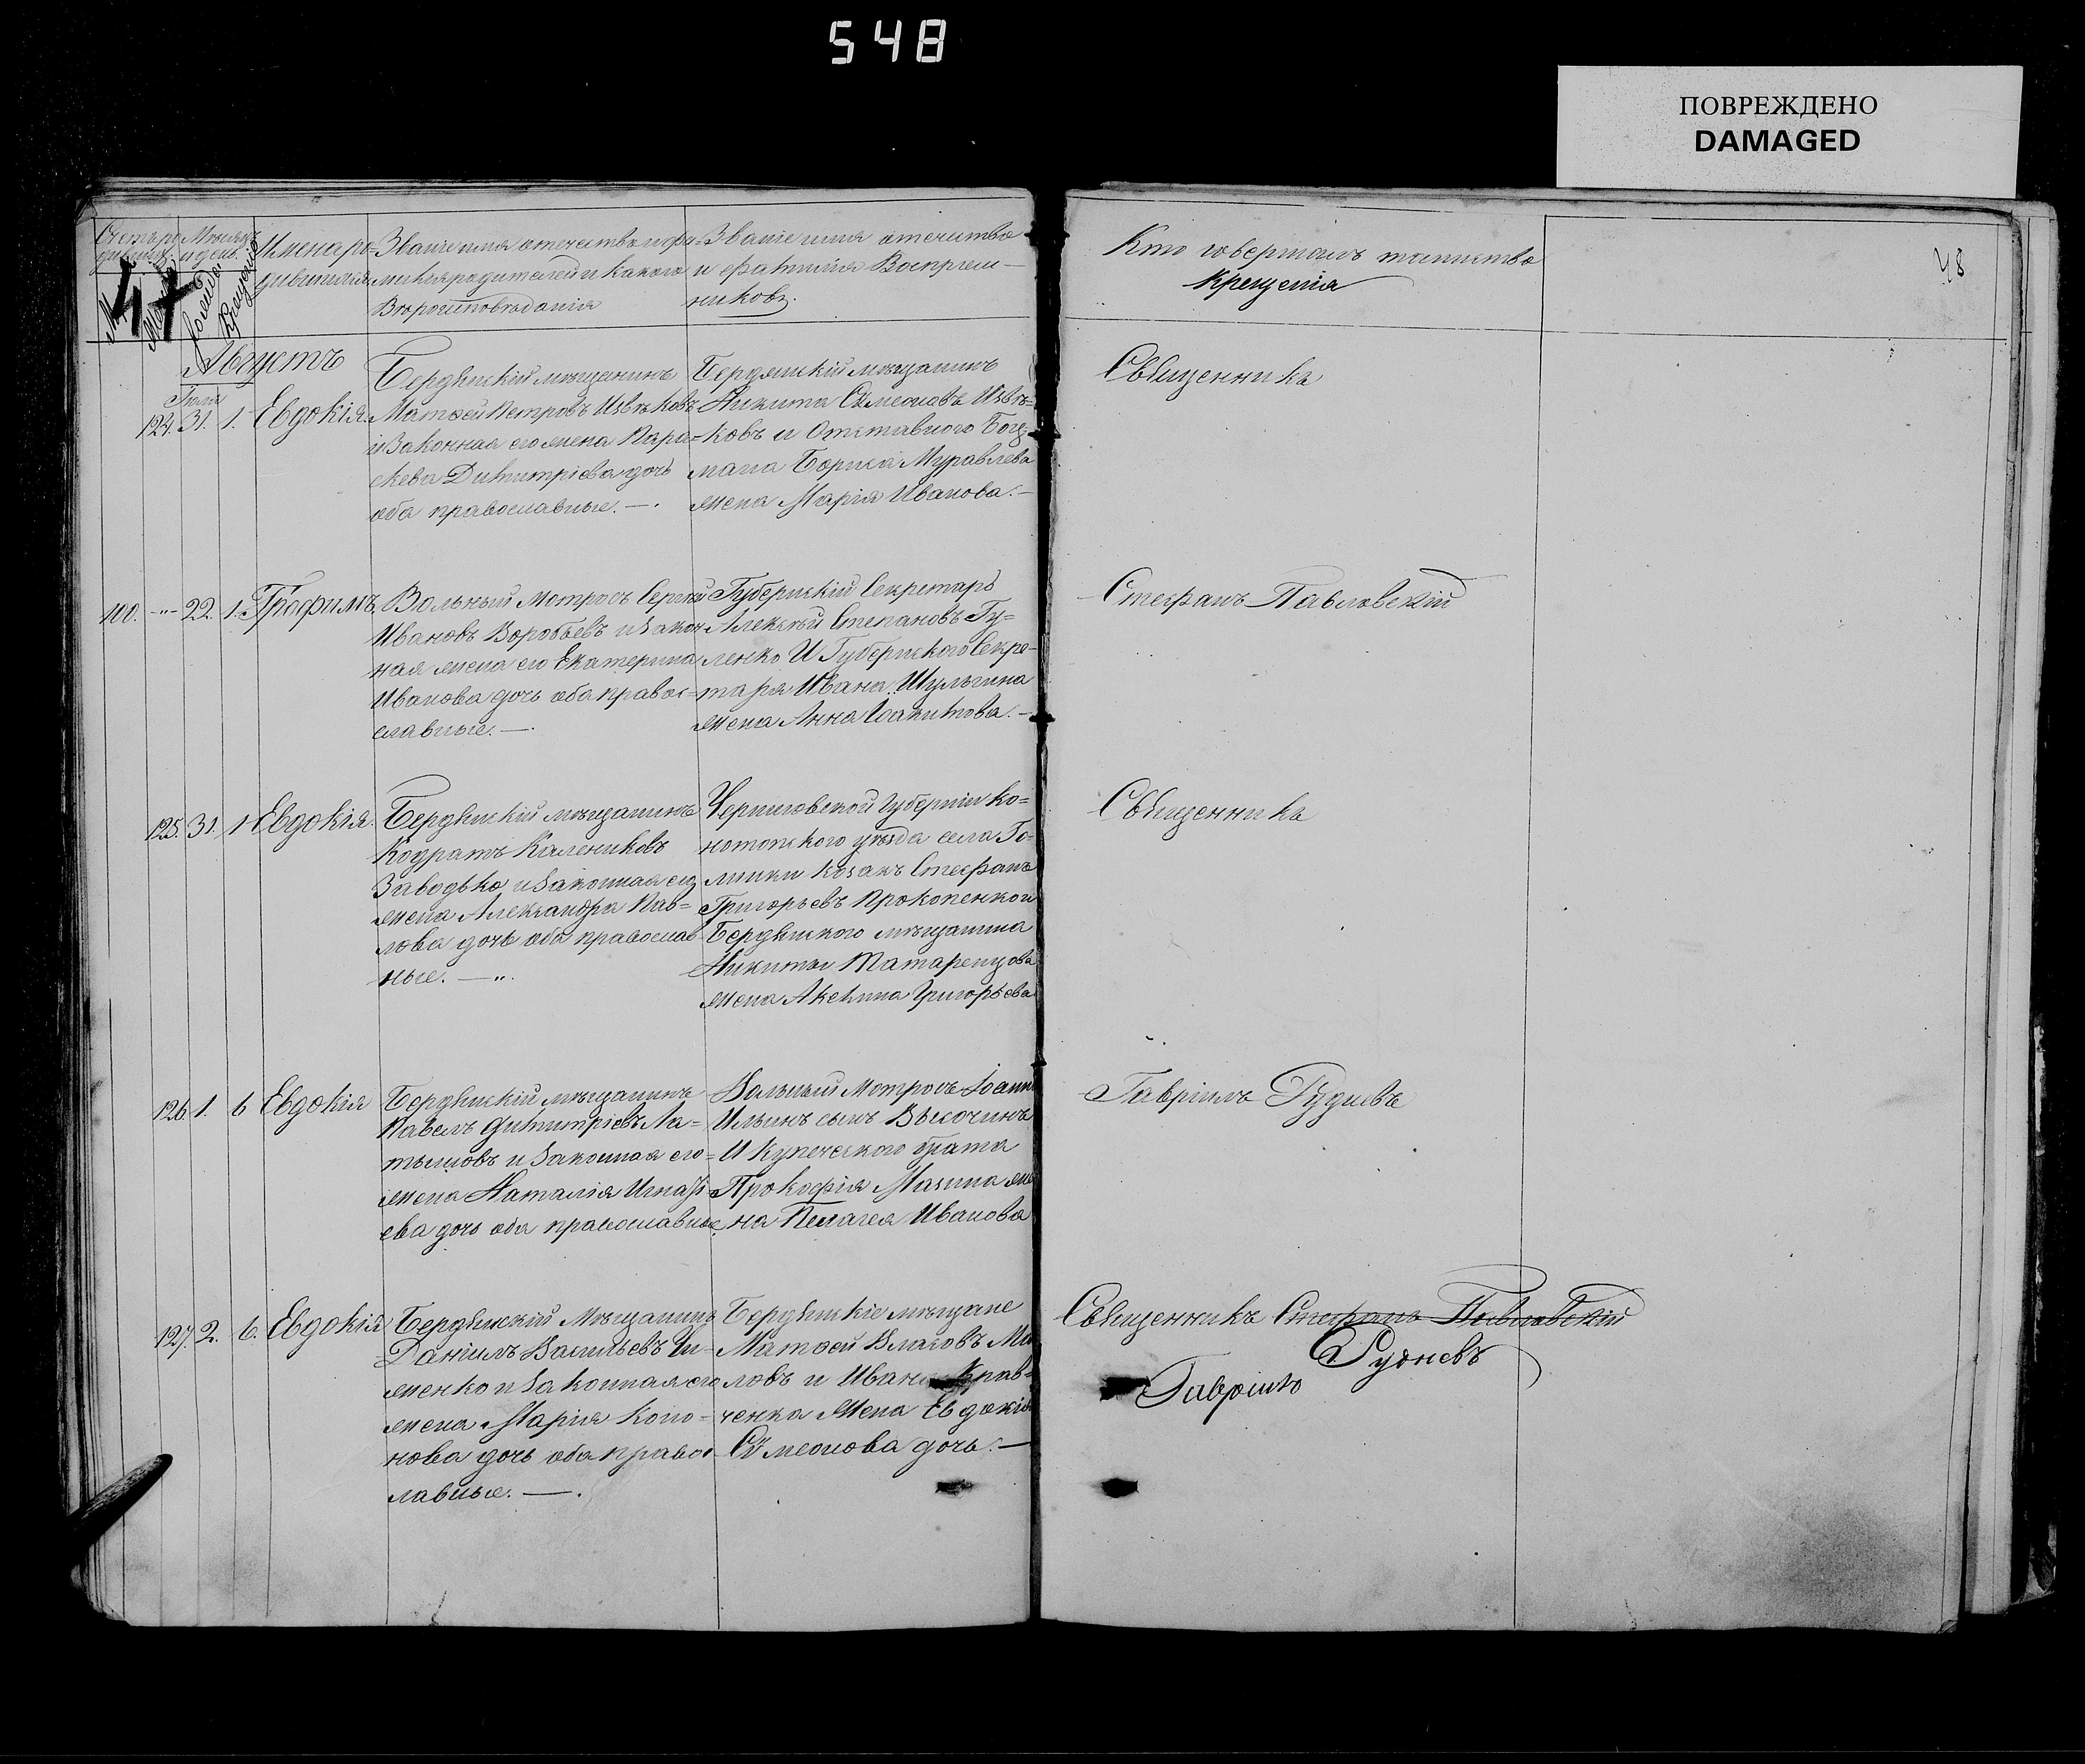 548
ПОВРЕЖДЕНО
DAMAGED
Счетъ ро- Мѣсяцъ
и день.
Имена ро-
дившихся
Званіе имя отечество и фа-
милія родителей и какого
Вѣроисповѣданія
Званіе имя отечество
и фамилія Воспріем-
никовъ.
Кто совершалъ таинство
крещенія
48
47
Августъ
Іюля
124. 31. 1. Евдокія.
Бердянскій мѣщанинъ
Матѳей Петровъ Извѣковъ
и Законная его жена Пара-
скева Димитріева дочь
оба православные. —.
Бердянскій мѣщанинъ
Никита Сѵмеоновъ Извѣ-
ковъ и Отставного Боц-
мана Бориса Муравлева
жена Марія Иванова. —
Священникъ
100. -"- 22. 1. Трофимъ
Вольный Матросъ Сергѣй
Ивановъ Воробьевъ и Закон-
ная жена его Екатерина
Иванова дочь оба правос-
славные. —.
Губернскій Секретарь
Алексѣй Степановъ Гу-
ленко И Губернского Секре-
таря Ивана Шульгина
жена Анна Іоакимова. —
Стефанъ Павловскій
125. 31. 1 Евдокія.
Бердянскій мѣщанинъ
Кодратъ Калениковъ
Заводько и Законная его
жена Александра Пав-
лова дочь оба православ-
ные. —„.
Черниговской Губерніи Ко-
нотопского уѣзда села Го-
линки козакъ Стефанъ
Григорьевъ Прокопенко и
Бердянского мѣщанина
Никиты Татаренцова
жена Акелина Григорьева
Священникъ
126. 1. 6 Евдокія
Бердянскій мѣщанинъ
Павелъ Димитріевъ Ла-
тышовъ и Законная его
жена Наталія Игнаті-
ева дочь оба православные
Вольный Матросъ Іоаннъ
Ильинъ сынъ Высочинъ
И Купеческого брата
Прокофія Мазина же
на Пелагея Иванова
Гавріилъ Рудневъ
127. 2. 6. Евдокія
Бердянскій Мѣщанинъ
Даніилъ Васильевъ Ши-
менко и Законная его
жена Марія Коно-
нова дочь оба правос-
лавные. —.
Бердянскіе мѣщане
Матѳей Власовъ Ми
ловъ и Ивана Крав-
ченка Жена Евдокія
Сѵмеонова дочь. —
Священникъ Стефанъ Павловскій
Рудневъ
Гавріилъ